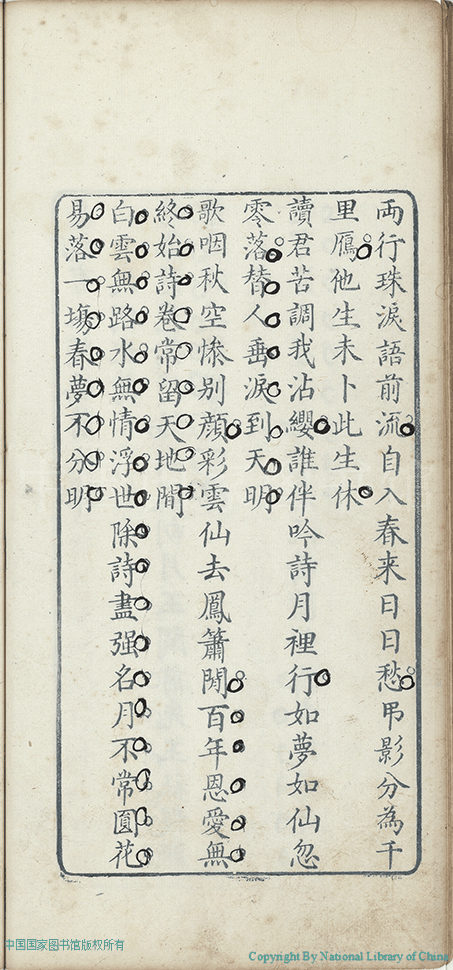 両行珠淚語前流自入春来日日愁弔影分為千
里鴈他生未卜此生休
讀君苦調我沾纓誰伴吟詩月裡行如夢如仙忽
零落替人垂淚到天明
歌咽秋空慘别顔彩雲仙去鳳簫閒百年恩愛無
終始詩卷常留天地間
白雲無路水無情浮世除詩盡强名月不常圓花
易落一塲春夢不分明
中国国家图书馆版权所有
Copyright By National Library of China